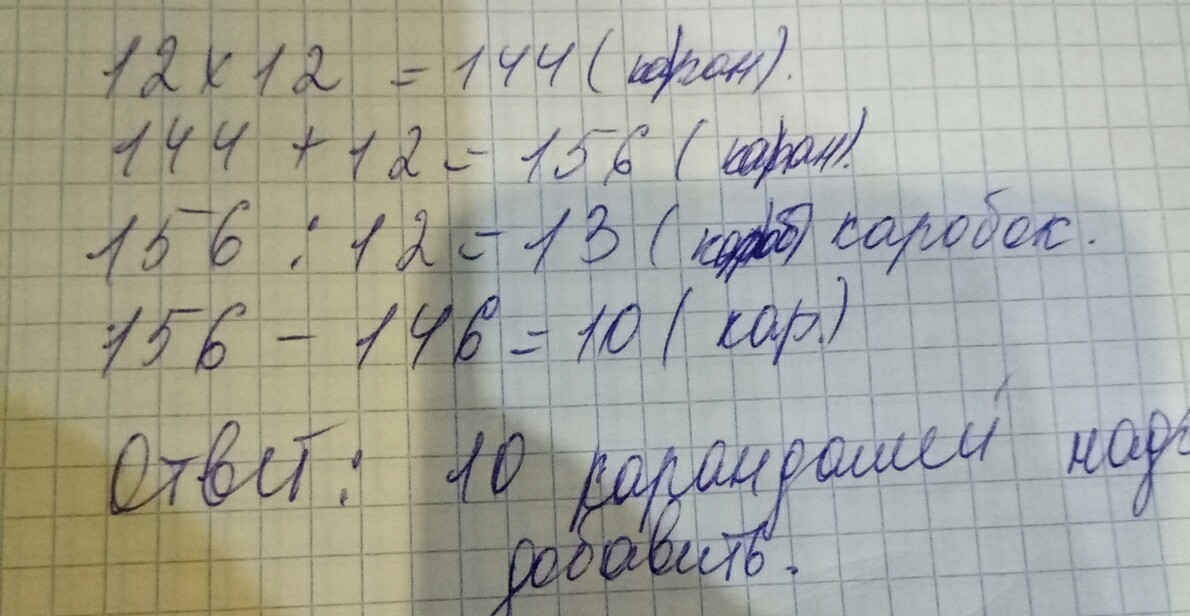 12 х 12 = 144 ( каран).
144 + 12 = 156 ( каран).
156 : 12 = 13 ( короб) каробок.
156 - 146 = 10 ( кар.)
Ответ: 10 карандашей надо
добавить.